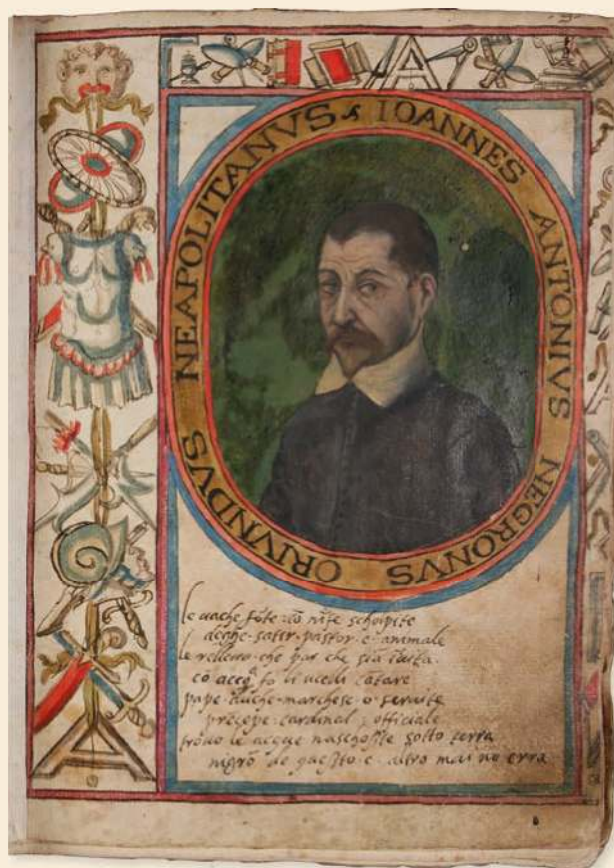 IOANNES ANTONIVS NEGRONVS ORIVNDVS NEAPOLITANVS
le uache fõte cõ nife scholpite
satir pastor e animale
le relleuo che par che sia
cõ fo li uceli catare
pape duche marchese o seruite
precepe cardinal officiale
trouo le acque naschoste sotto terra
nigro de e altro mai no erra